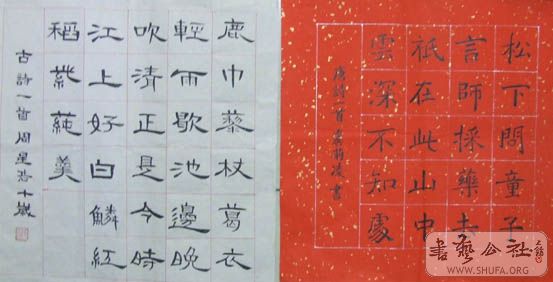 松下問童子
言師採藥去
祇在此山中
雲深不知處
唐詩一首 書
鹿巾藜杖葛衣
輕雨歇池邊晚
吹清正是今時
江上好白鱗紅
稻紫蒓羹
古詩一首 周星浩十歲
書藝公社
WWW.SHUFA.ORG